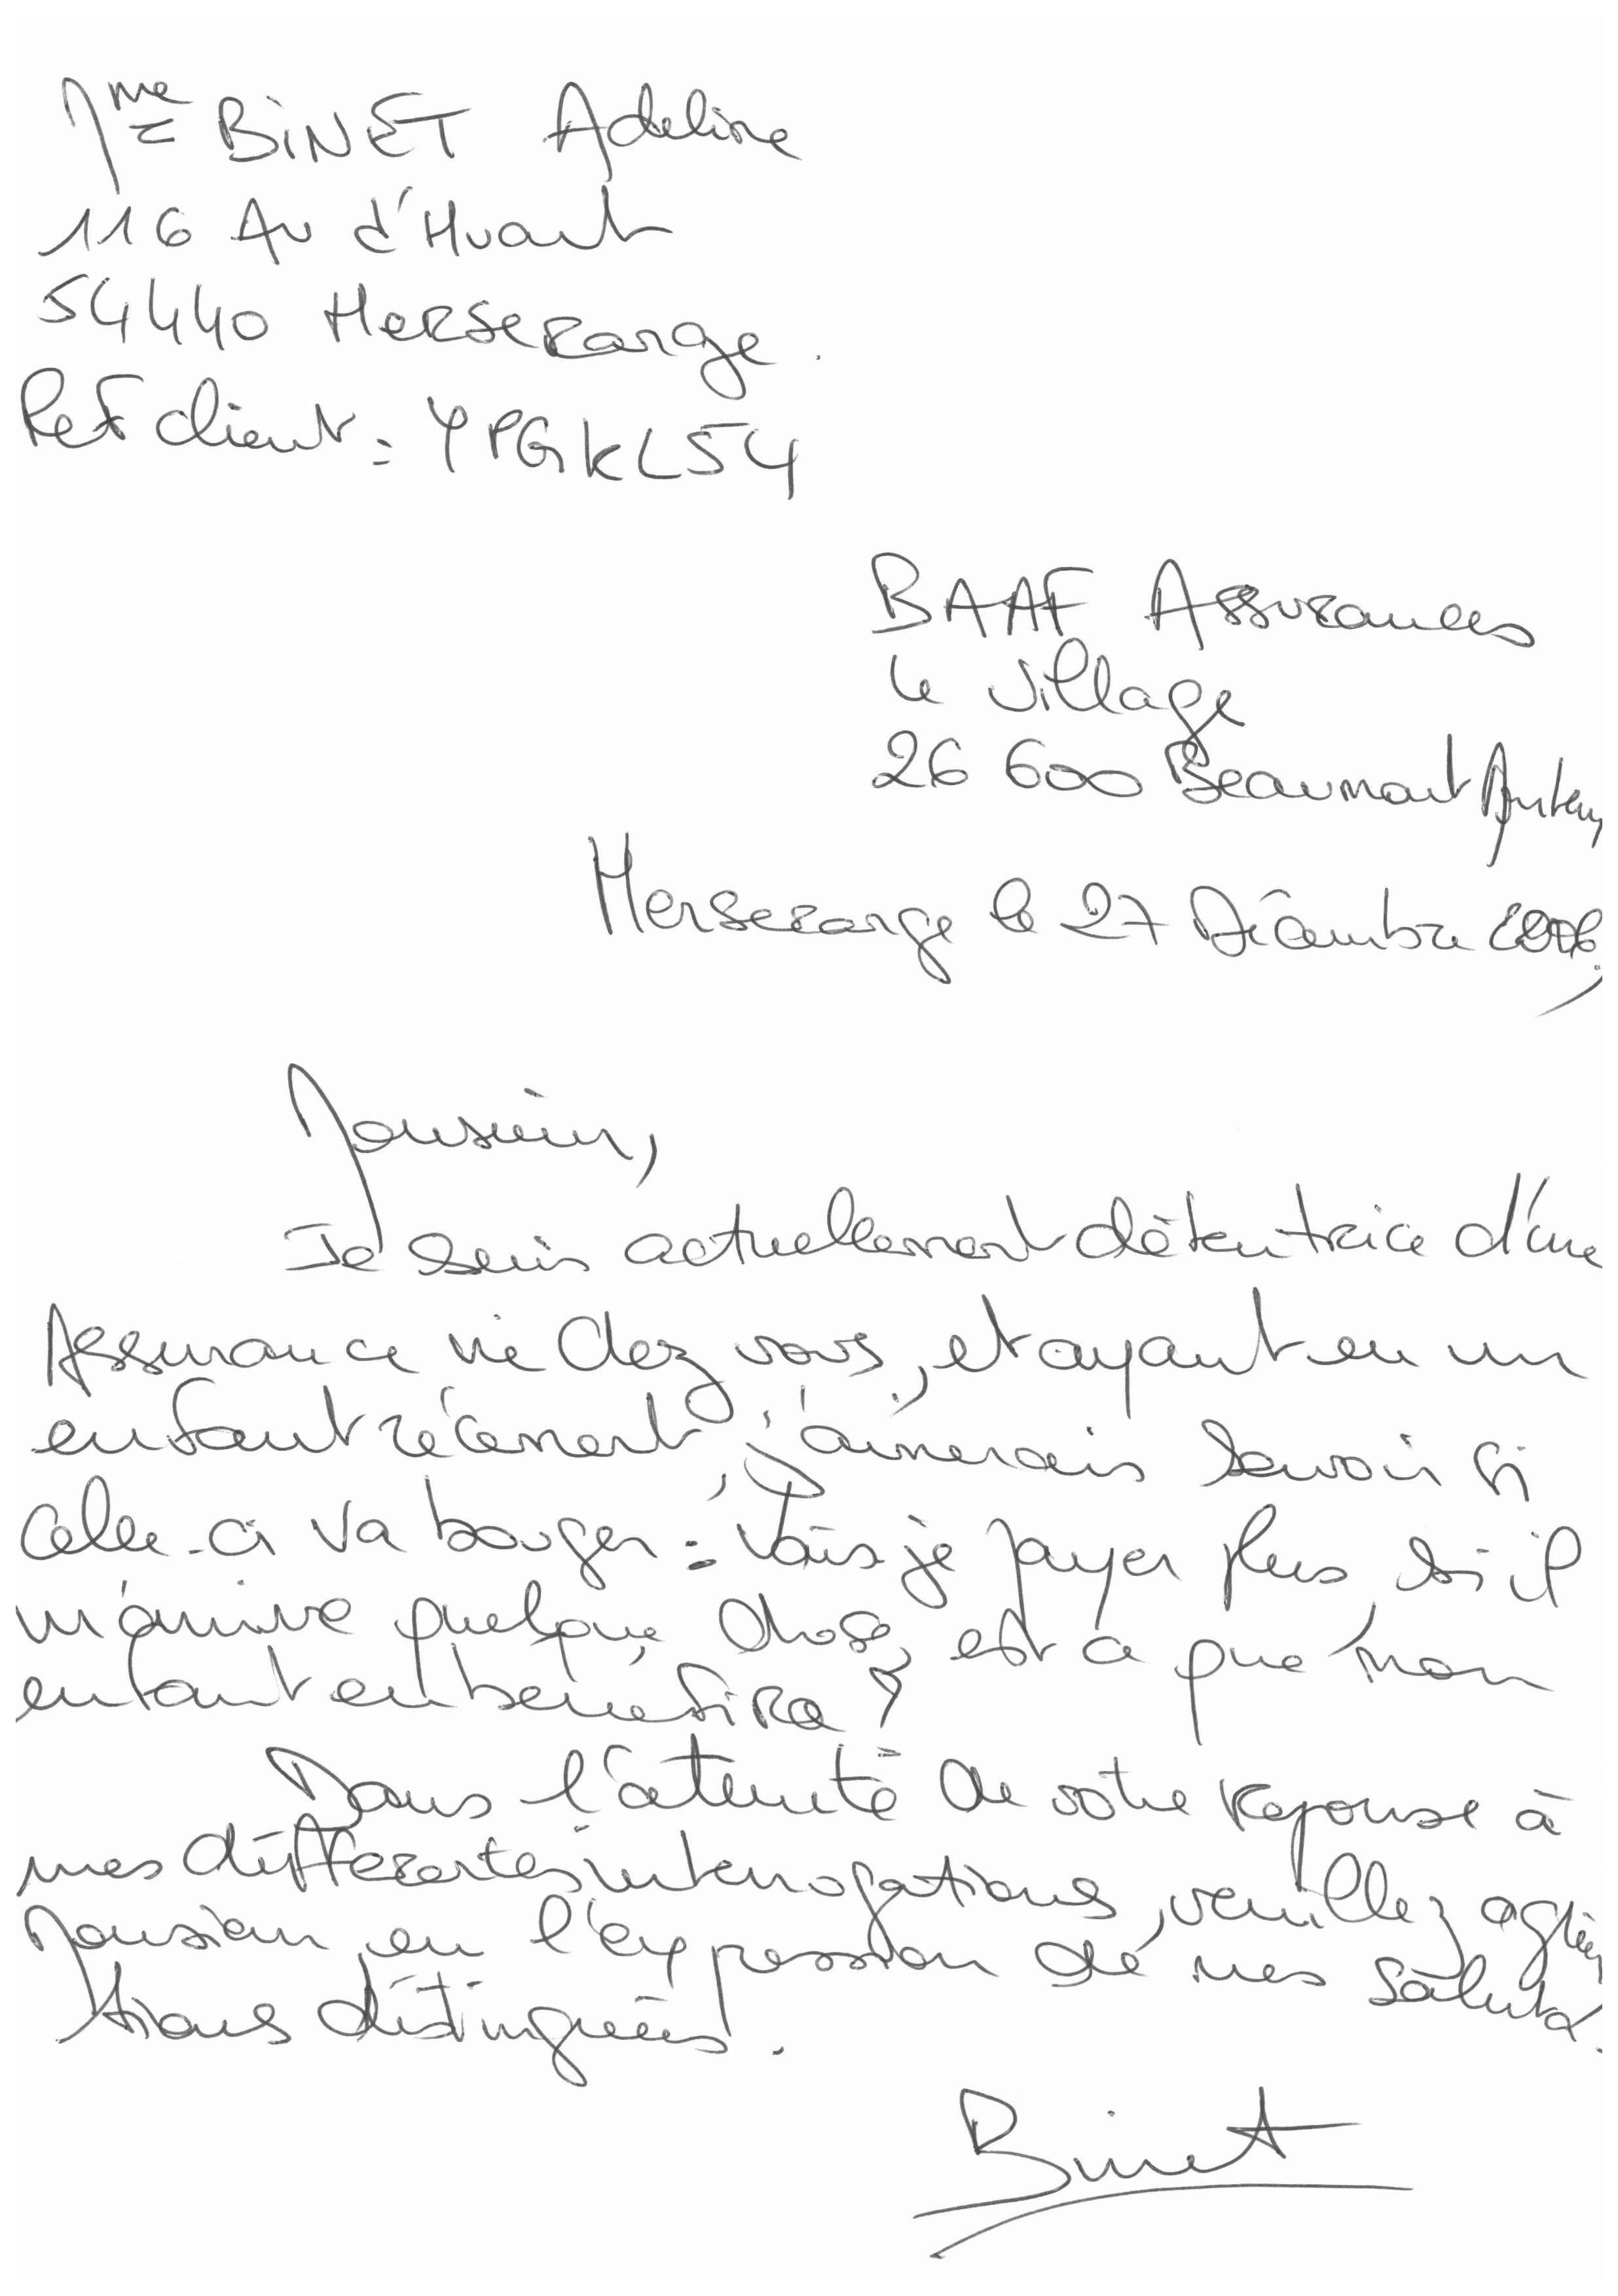 Mme BiNET Adeline
116 Av d'Huart
54440 Herserange.
Ref client : YPGKL54
BAAF Assurances
Le Village
26 600 Beaumont
Herserange le 27 Décembre 2006,
Monsieur,
Je suis actuellement détentrice d'une
Assurance vie chez vous, et ayant eu un
enfant récement, j'aimerais savoir si
celle-ci va bouger : Vais je payer plus, si il
m'arrive quelque chose, est ce que mon
enfant en bénéfira ?
Dans l'attente de votre reponse à
mes differentes interrogations, veuillez agréer
Monsieur, en l'expression de mes saluta-
tions distinguées.
Binet